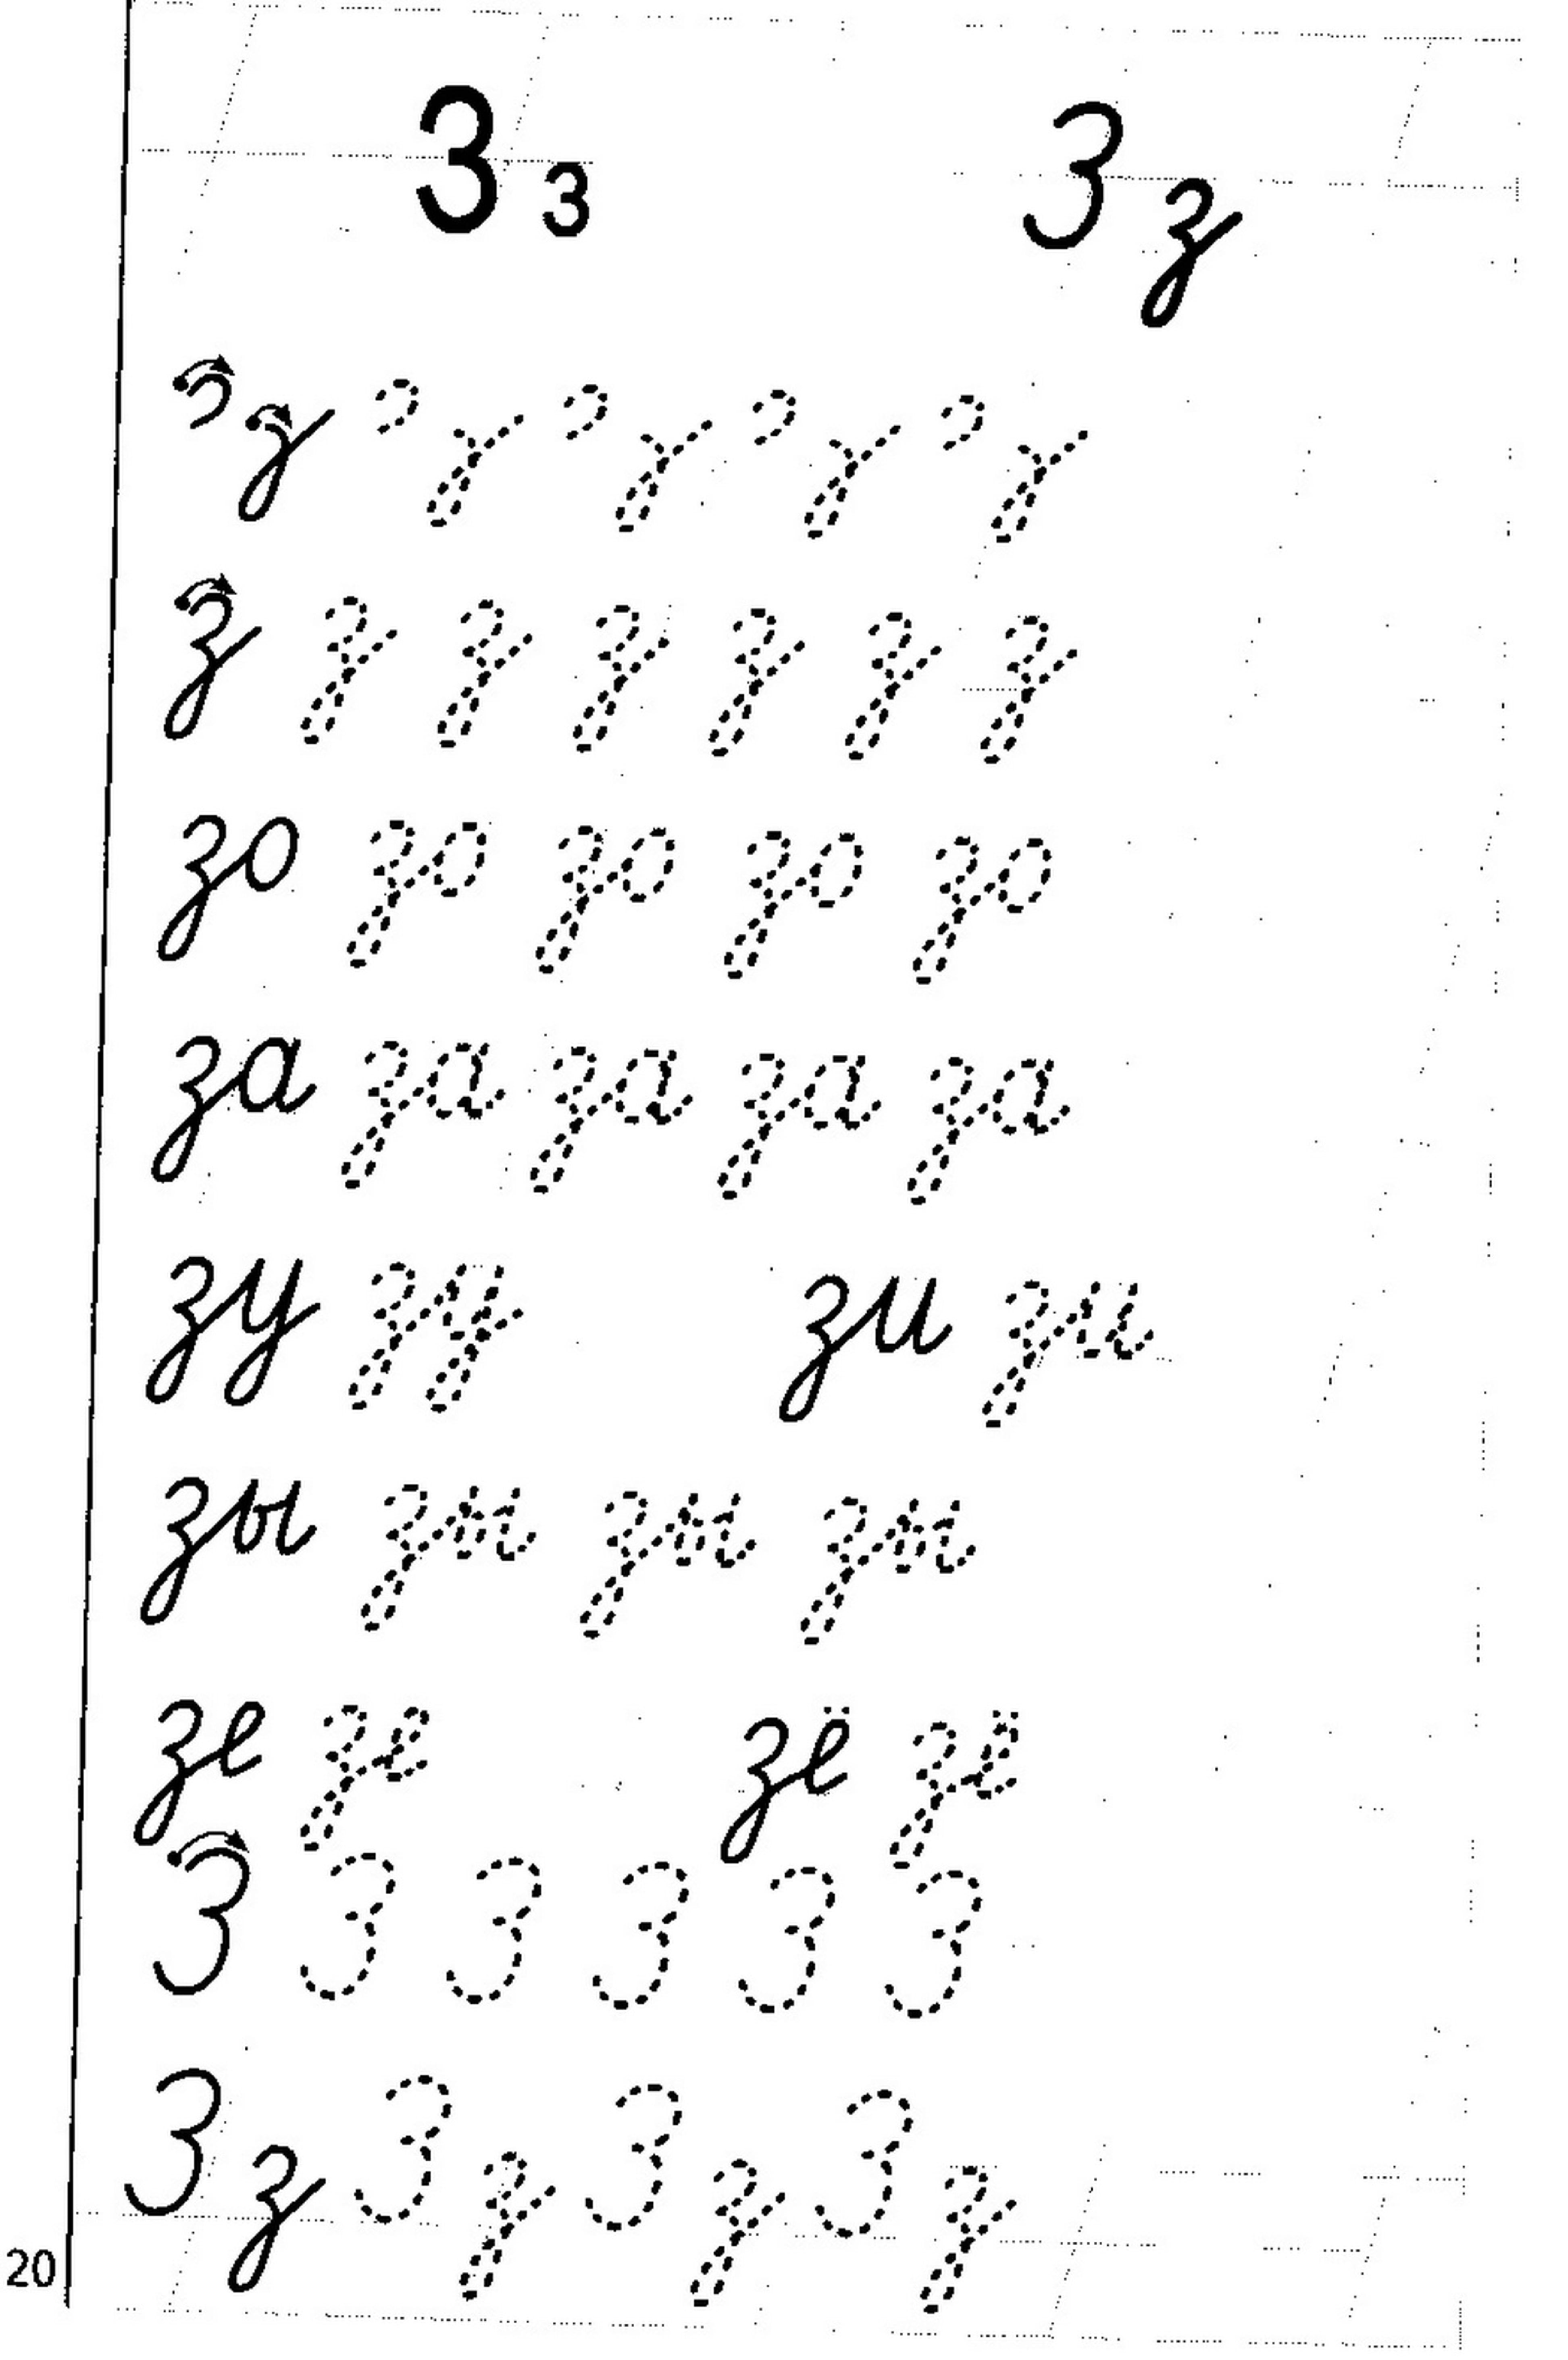 З з З з
з з з з з з з
зо зо зо зо зо
за за за за за
зу зу зи зи
зы зы зы зы
зе зе зё зё
З З З З З З
З з З з З з З з
20